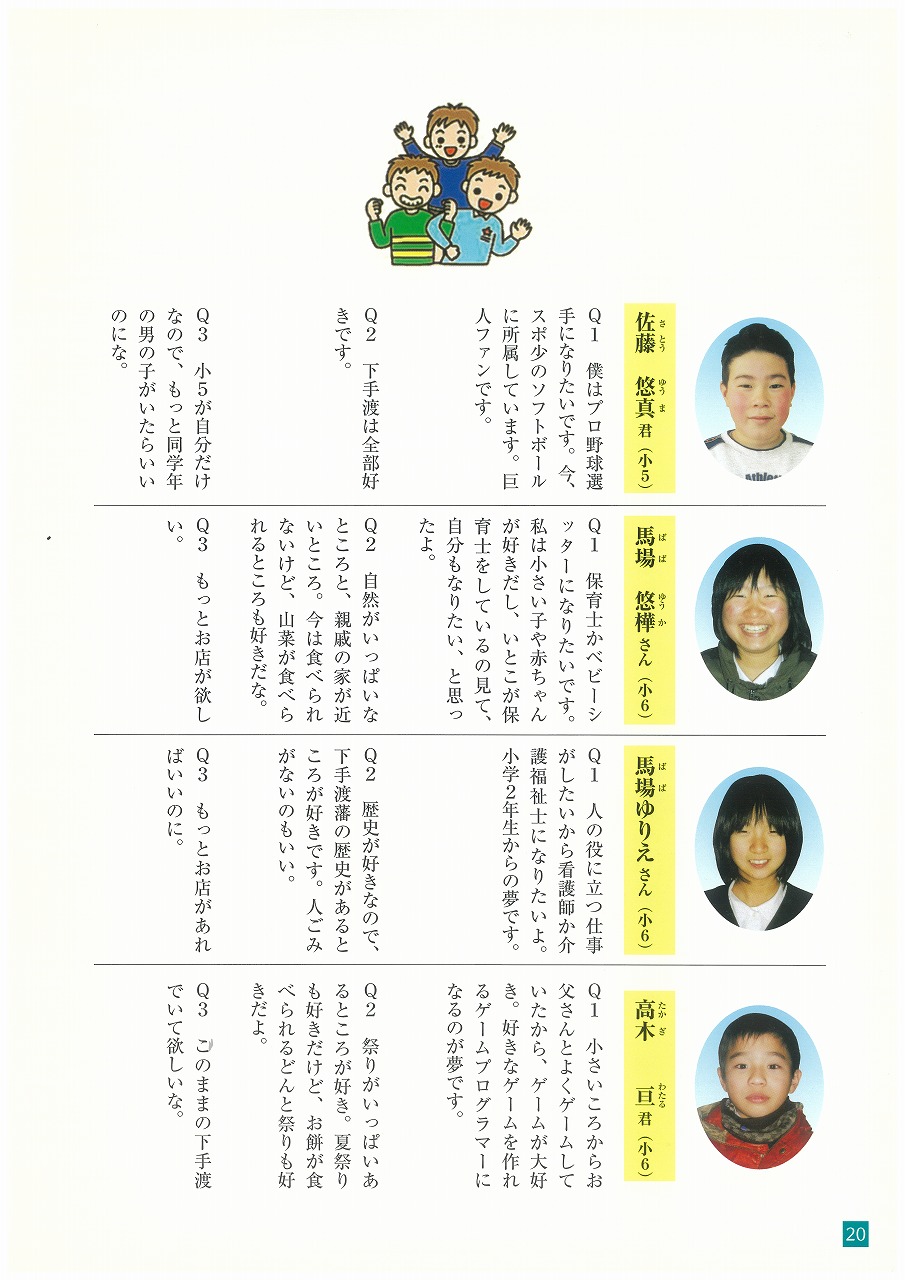 佐藤 悠真君(小5)
さとう ゆうま
Q1 僕はプロ野球選
手になりたいです。今、
スポ少のソフトボール
に所属しています。巨
人ファンです。
Q2 下手渡は全部好
きです。
Q3 小5が自分だけ
なので、もっと同学年
の男の子がいたらいい
のにな。
馬場 悠樺さん(小6)
ばば ゆうか
Q1 保育士かベビーシ
ッターになりたいです。
私は小さい子や赤ちゃん
が好きだし、いとこが保
育士をしているの見て、
自分もなりたい、と思っ
たよ。
Q2 自然がいっぱいな
ところと、親戚の家が近
いところ。今は食べられ
ないけど、山菜が食べら
れるところも好きだな。
Q3 もっとお店が欲し
い。
馬場ゆりえさん(小6)
ばば
Q1 人の役に立つ仕事
がしたいから看護師か介
護福祉士になりたいよ。
小学2年生からの夢です。
Q2 歴史が好きなので、
下手渡藩の歴史があると
ころが好きです。人ごみ
がないのもいい。
Q3 もっとお店があれ
ばいいのに。
高木 亘君(小6)
たかぎ わたる
Q1 小さいころからお
父さんとよくゲームして
いたから、ゲームが大好
き。好きなゲームを作れ
るゲームプログラマーに
なるのが夢です。
Q2 祭りがいっぱいあ
るところが好き。夏祭り
も好きだけど、お餅が食
べられるどんと祭りも好
きだよ。
Q3 このままの下手渡
でいて欲しいな。
20